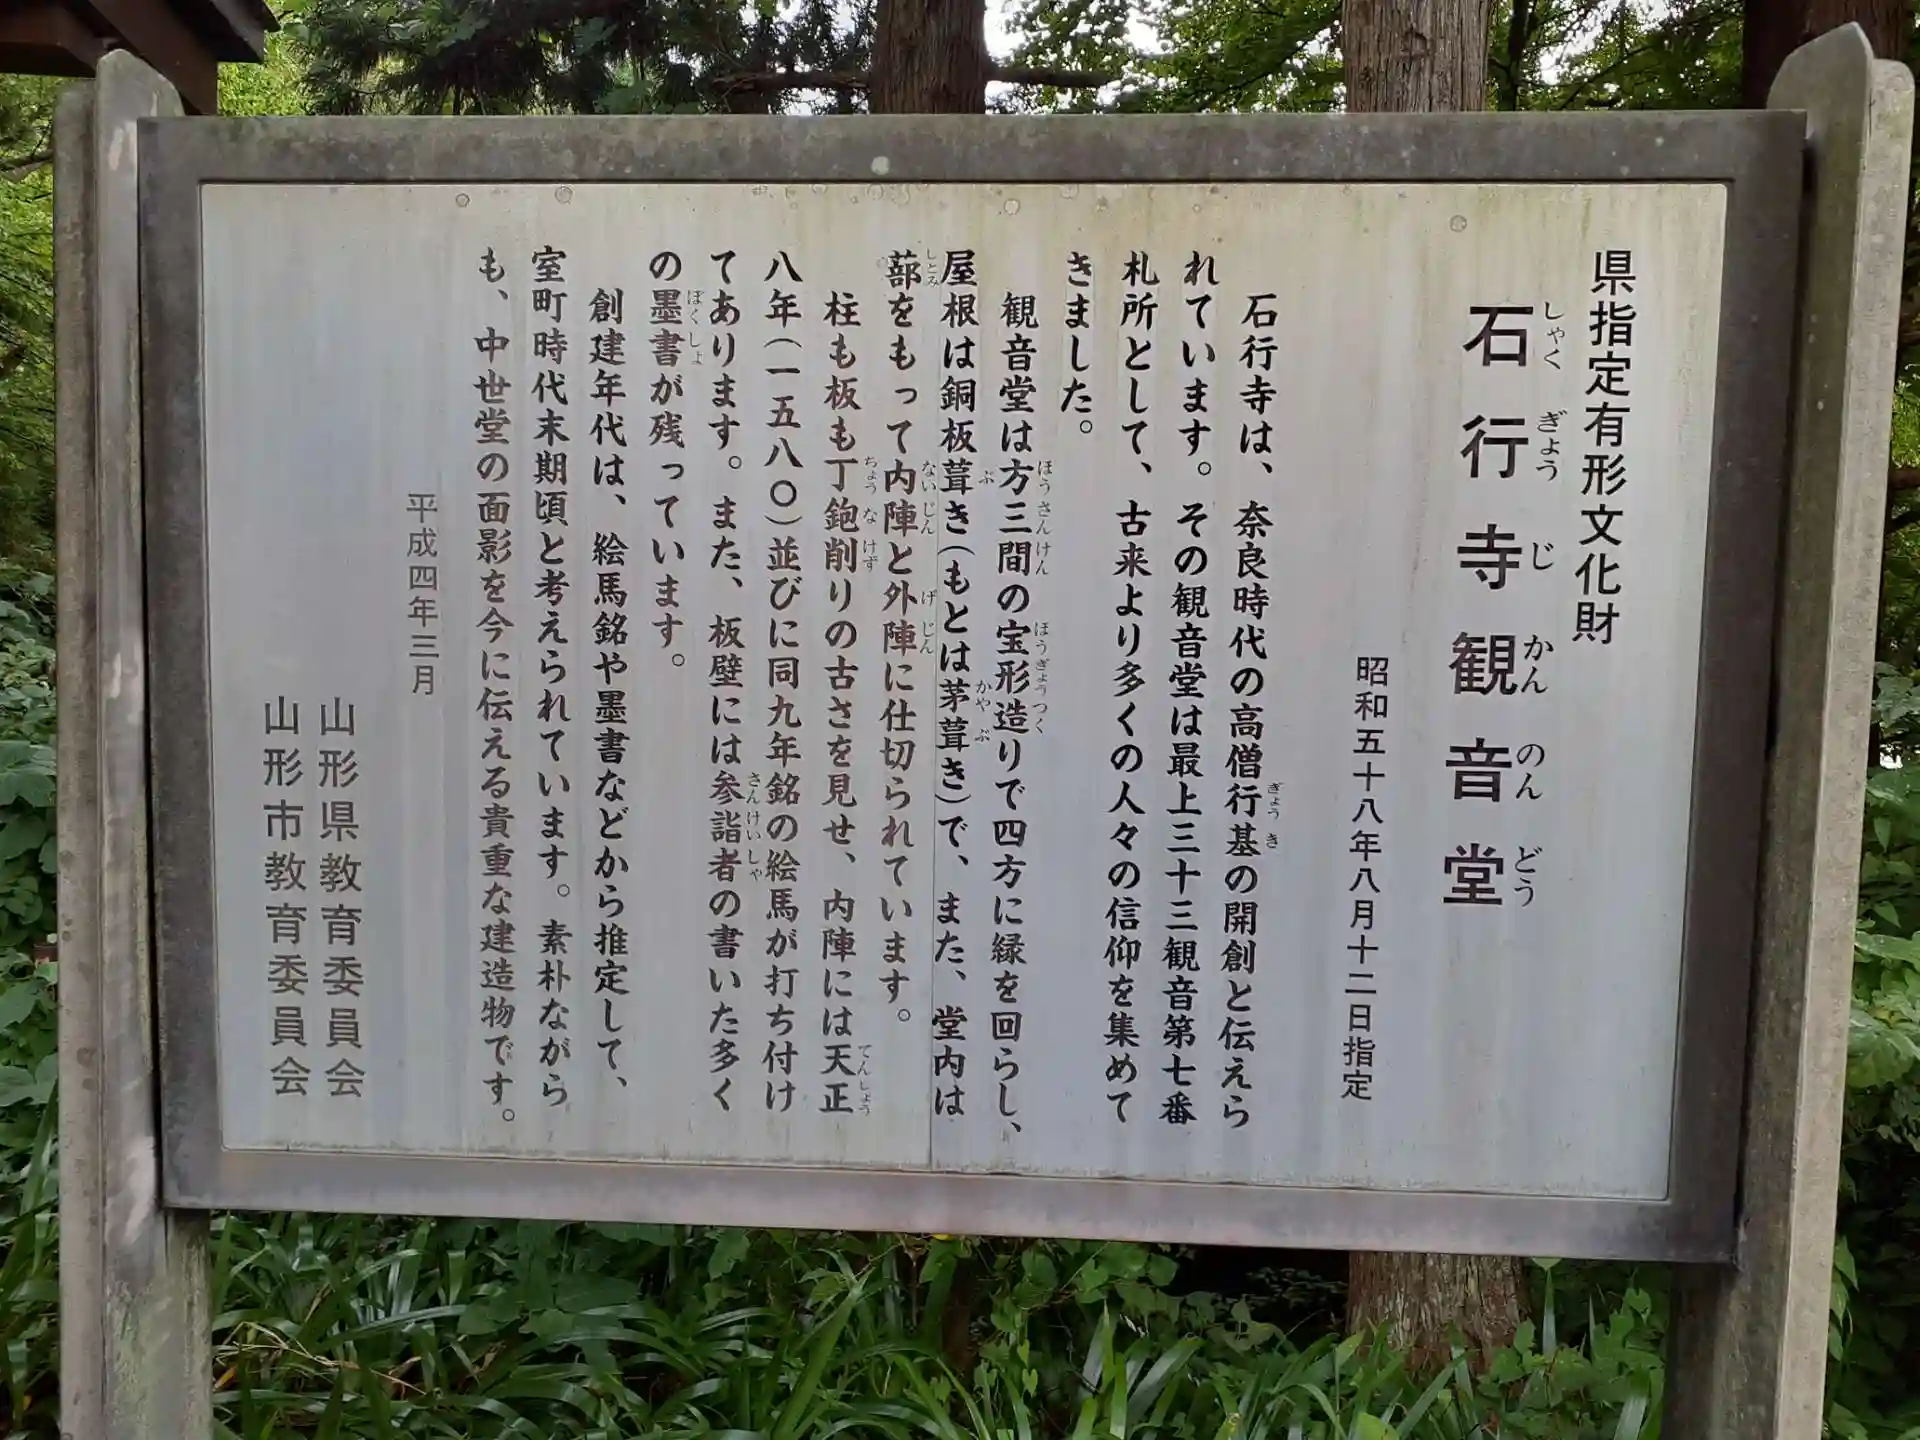 県指定有形文化財
石行寺観音堂
しゃくぎょうじかんのんどう
昭和五十八年八月十二日指定
石行寺は、奈良時代の高僧行基の開創と伝えら
ぎょうき
れています。その観音堂は最上三十三観音第七番
札所として、古来より多くの人々の信仰を集めて
きました。
観音堂は方三間の宝形造りで四方に縁を回らし、
ほうさんけん ほうぎょうつく
屋根は銅板葺き(もとは茅葺き)で、また、堂内は
ぶ かやぶ
蔀をもって内陣と外陣に仕切られています。
しとみ ないじん げじん
柱も板も丁鉋削りの古さを見せ、内陣には天正
ちょうなけず てんしょう
八年(一五八〇)並びに同九年銘の絵馬が打ち付け
てあります。また、板壁には参詣者の書いた多く
さんけいしゃ
の墨書が残っています。
ぼくしょ
創建年代は、絵馬銘や墨書などから推定して、
室町時代末期頃と考えられています。素朴ながら
も、中世堂の面影を今に伝える貴重な建造物です。
平成四年三月
山形県教育委員会
山形市教育委員会